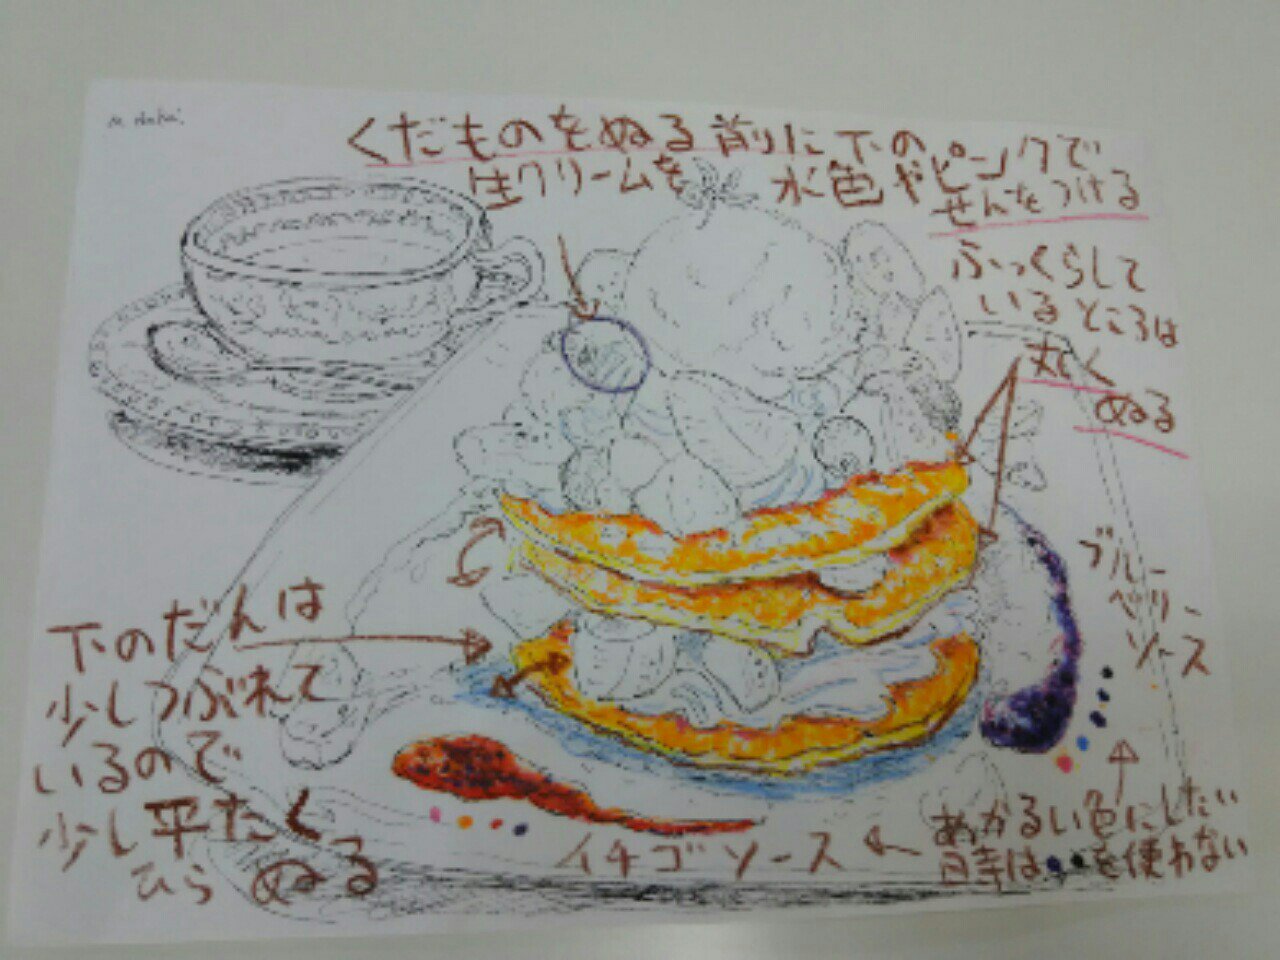 くだものをぬる前に下の
生クリームを 水色やピンクで
せんをつける
ふっくらして
いるところは
丸く
ぬる
ブルー
ベリー
ソース
下のだんは
少しつぶれて
いるので
少し平たく
ひら ぬる
イチゴソース
あかるい色にしたい
時は を使わない